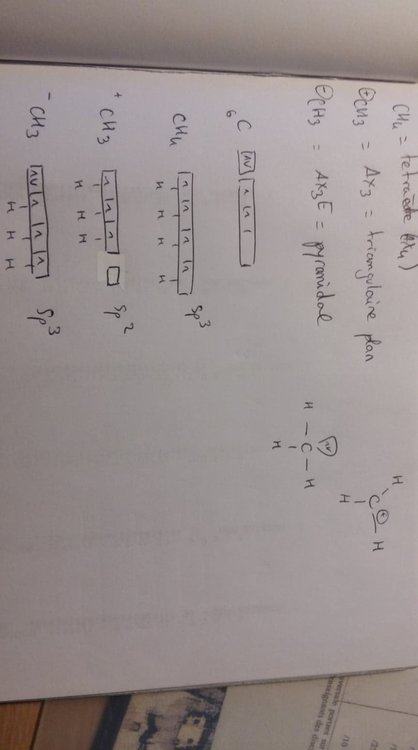 CH4 = tetraède (AX4)
⊕CH3 = AX3 = triangulaire plan
⊖CH3 = AX3E = pyramidal
H
C ⊕ H
H
H — C — H
H
6C
CH4 sp3
H H H H
+CH3 sp2
H H H
-CH3 sp3
H H H